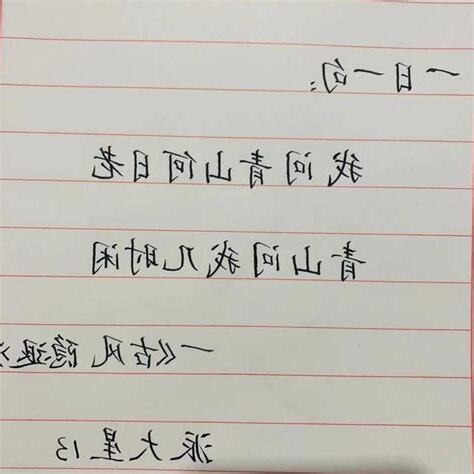 一日一句:
我问青山何日老
青山问我几时闲
一《古风 隐退
派大星13